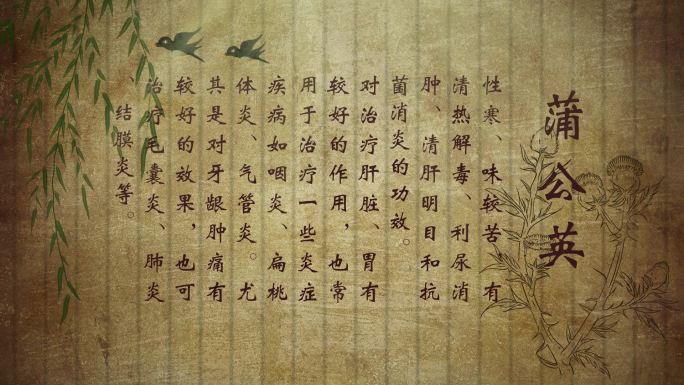 蒲公英
性寒、味较苦、有
清热解毒、利尿消
肿、清肝明目和抗
菌消炎的功效。
对治疗肝脏、胃有
较好的作用，也常
用于治疗一些炎症
疾病如咽炎、扁桃
体炎、气管炎。尤
其是对牙龈肿痛有
较好的效果，也可
治疗毛囊炎、肺炎
、结膜炎等。